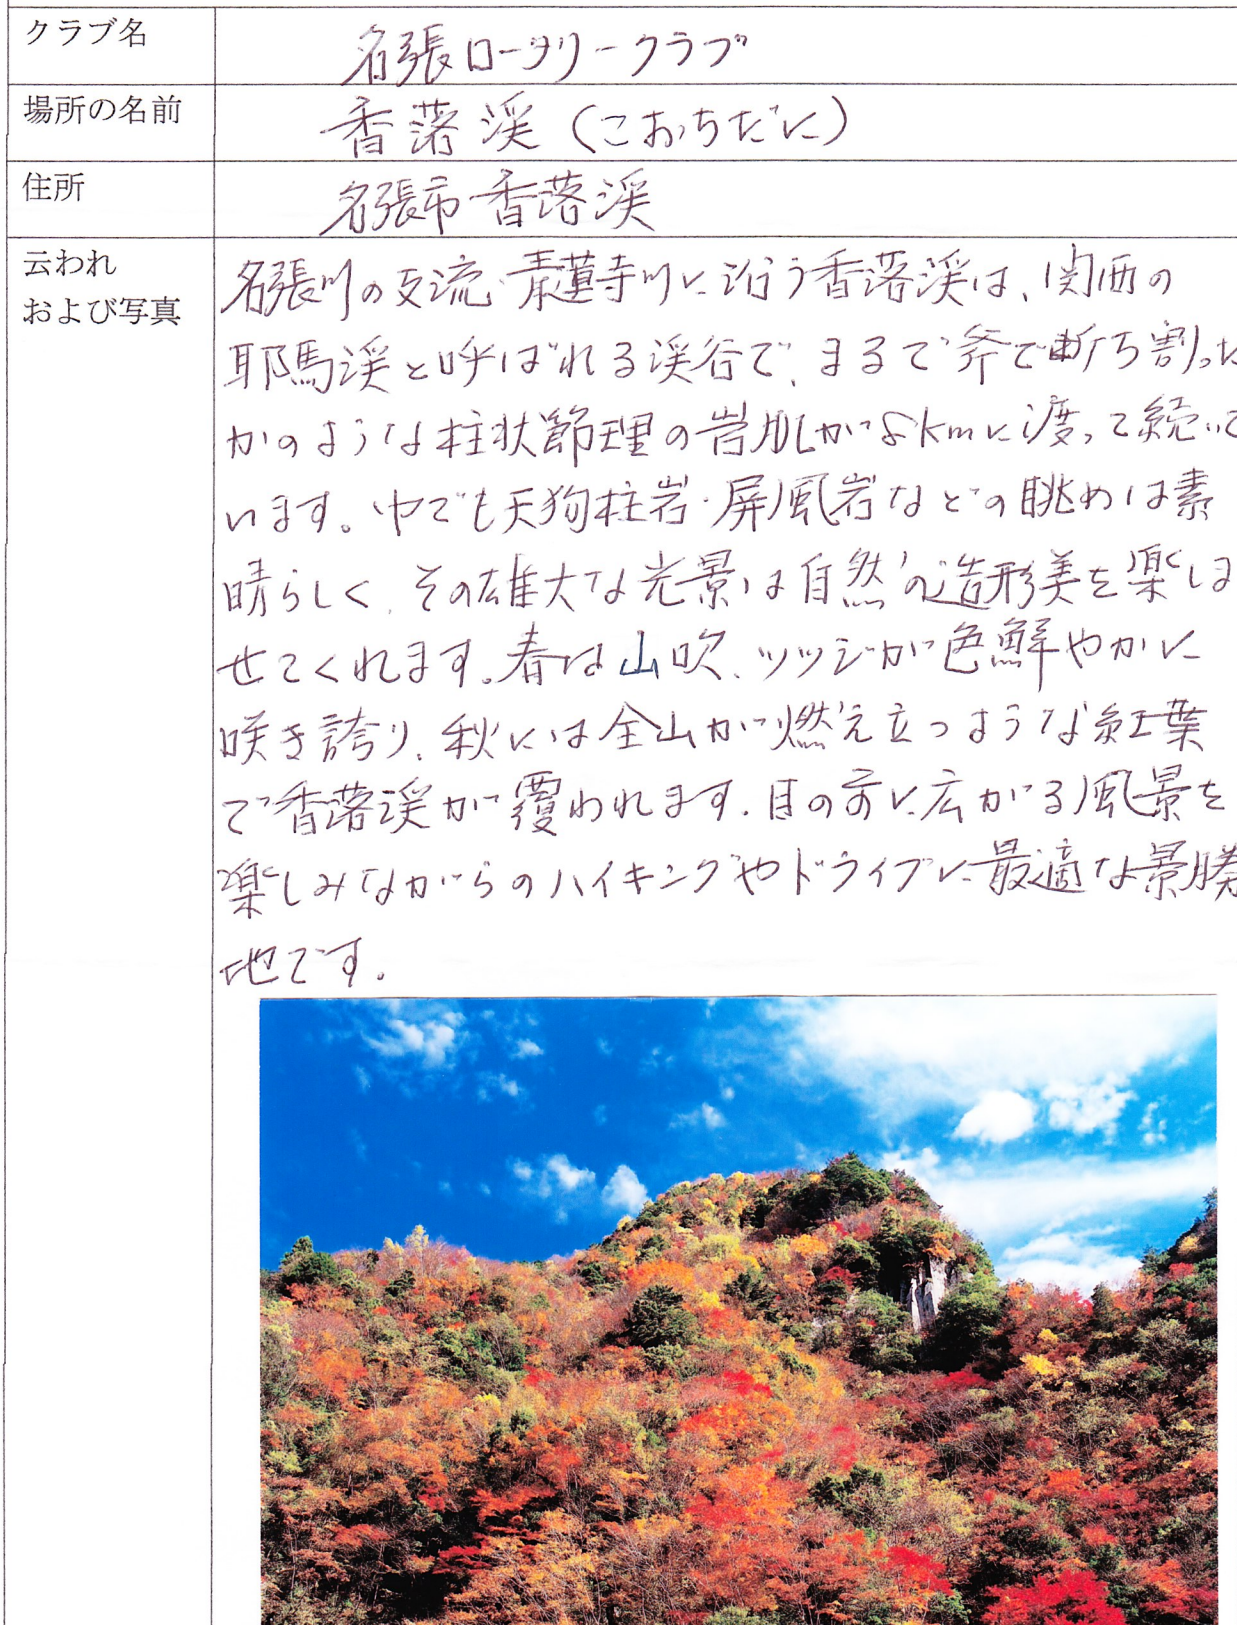 クラブ名
名張ロータリークラブ
場所の名前
香落渓（こおちだに）
住所
名張市香落渓
云われ
および写真
名張川の支流・青蓮寺川に沿う香落渓は、関西の
耶馬渓と呼ばれる渓谷で、まるで斧で断ち割った
かのような柱状節理の岩肌が8kmに渡って続いて
います。中でも天狗柱岩・屏風岩などの眺めは素
晴らしく、その雄大な光景は自然の造形美を楽しま
せてくれます。春は山吹、ツツジが色鮮やかに
咲き誇り、秋には全山が燃え立つような紅葉
で香落渓が覆われます。目の前に広がる風景を
楽しみながらのハイキングやドライブに最適な景勝
地です。